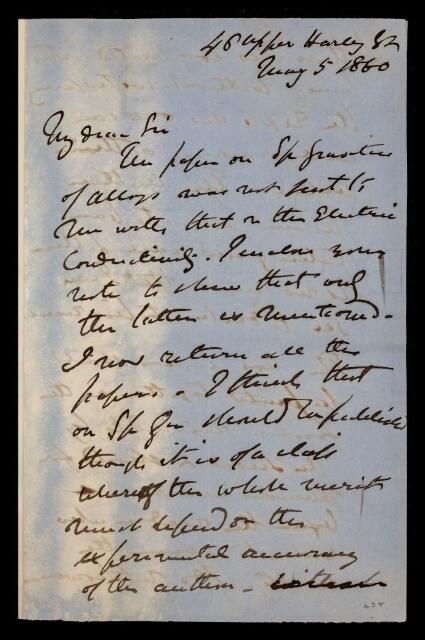 48 Upper Harley St
May 5 1860
My dear Sir
The paper on Sp Gravities
of alloys was not sent to
me with that on the Electric
Conductivity. I enclose your
note to shew that only
the latter is mentioned.
I now return all the
papers. I think that
on Sp Gr should be published
though it is of a class
whereof the whole merit
must depend on the
experimental accuracy
of the author -